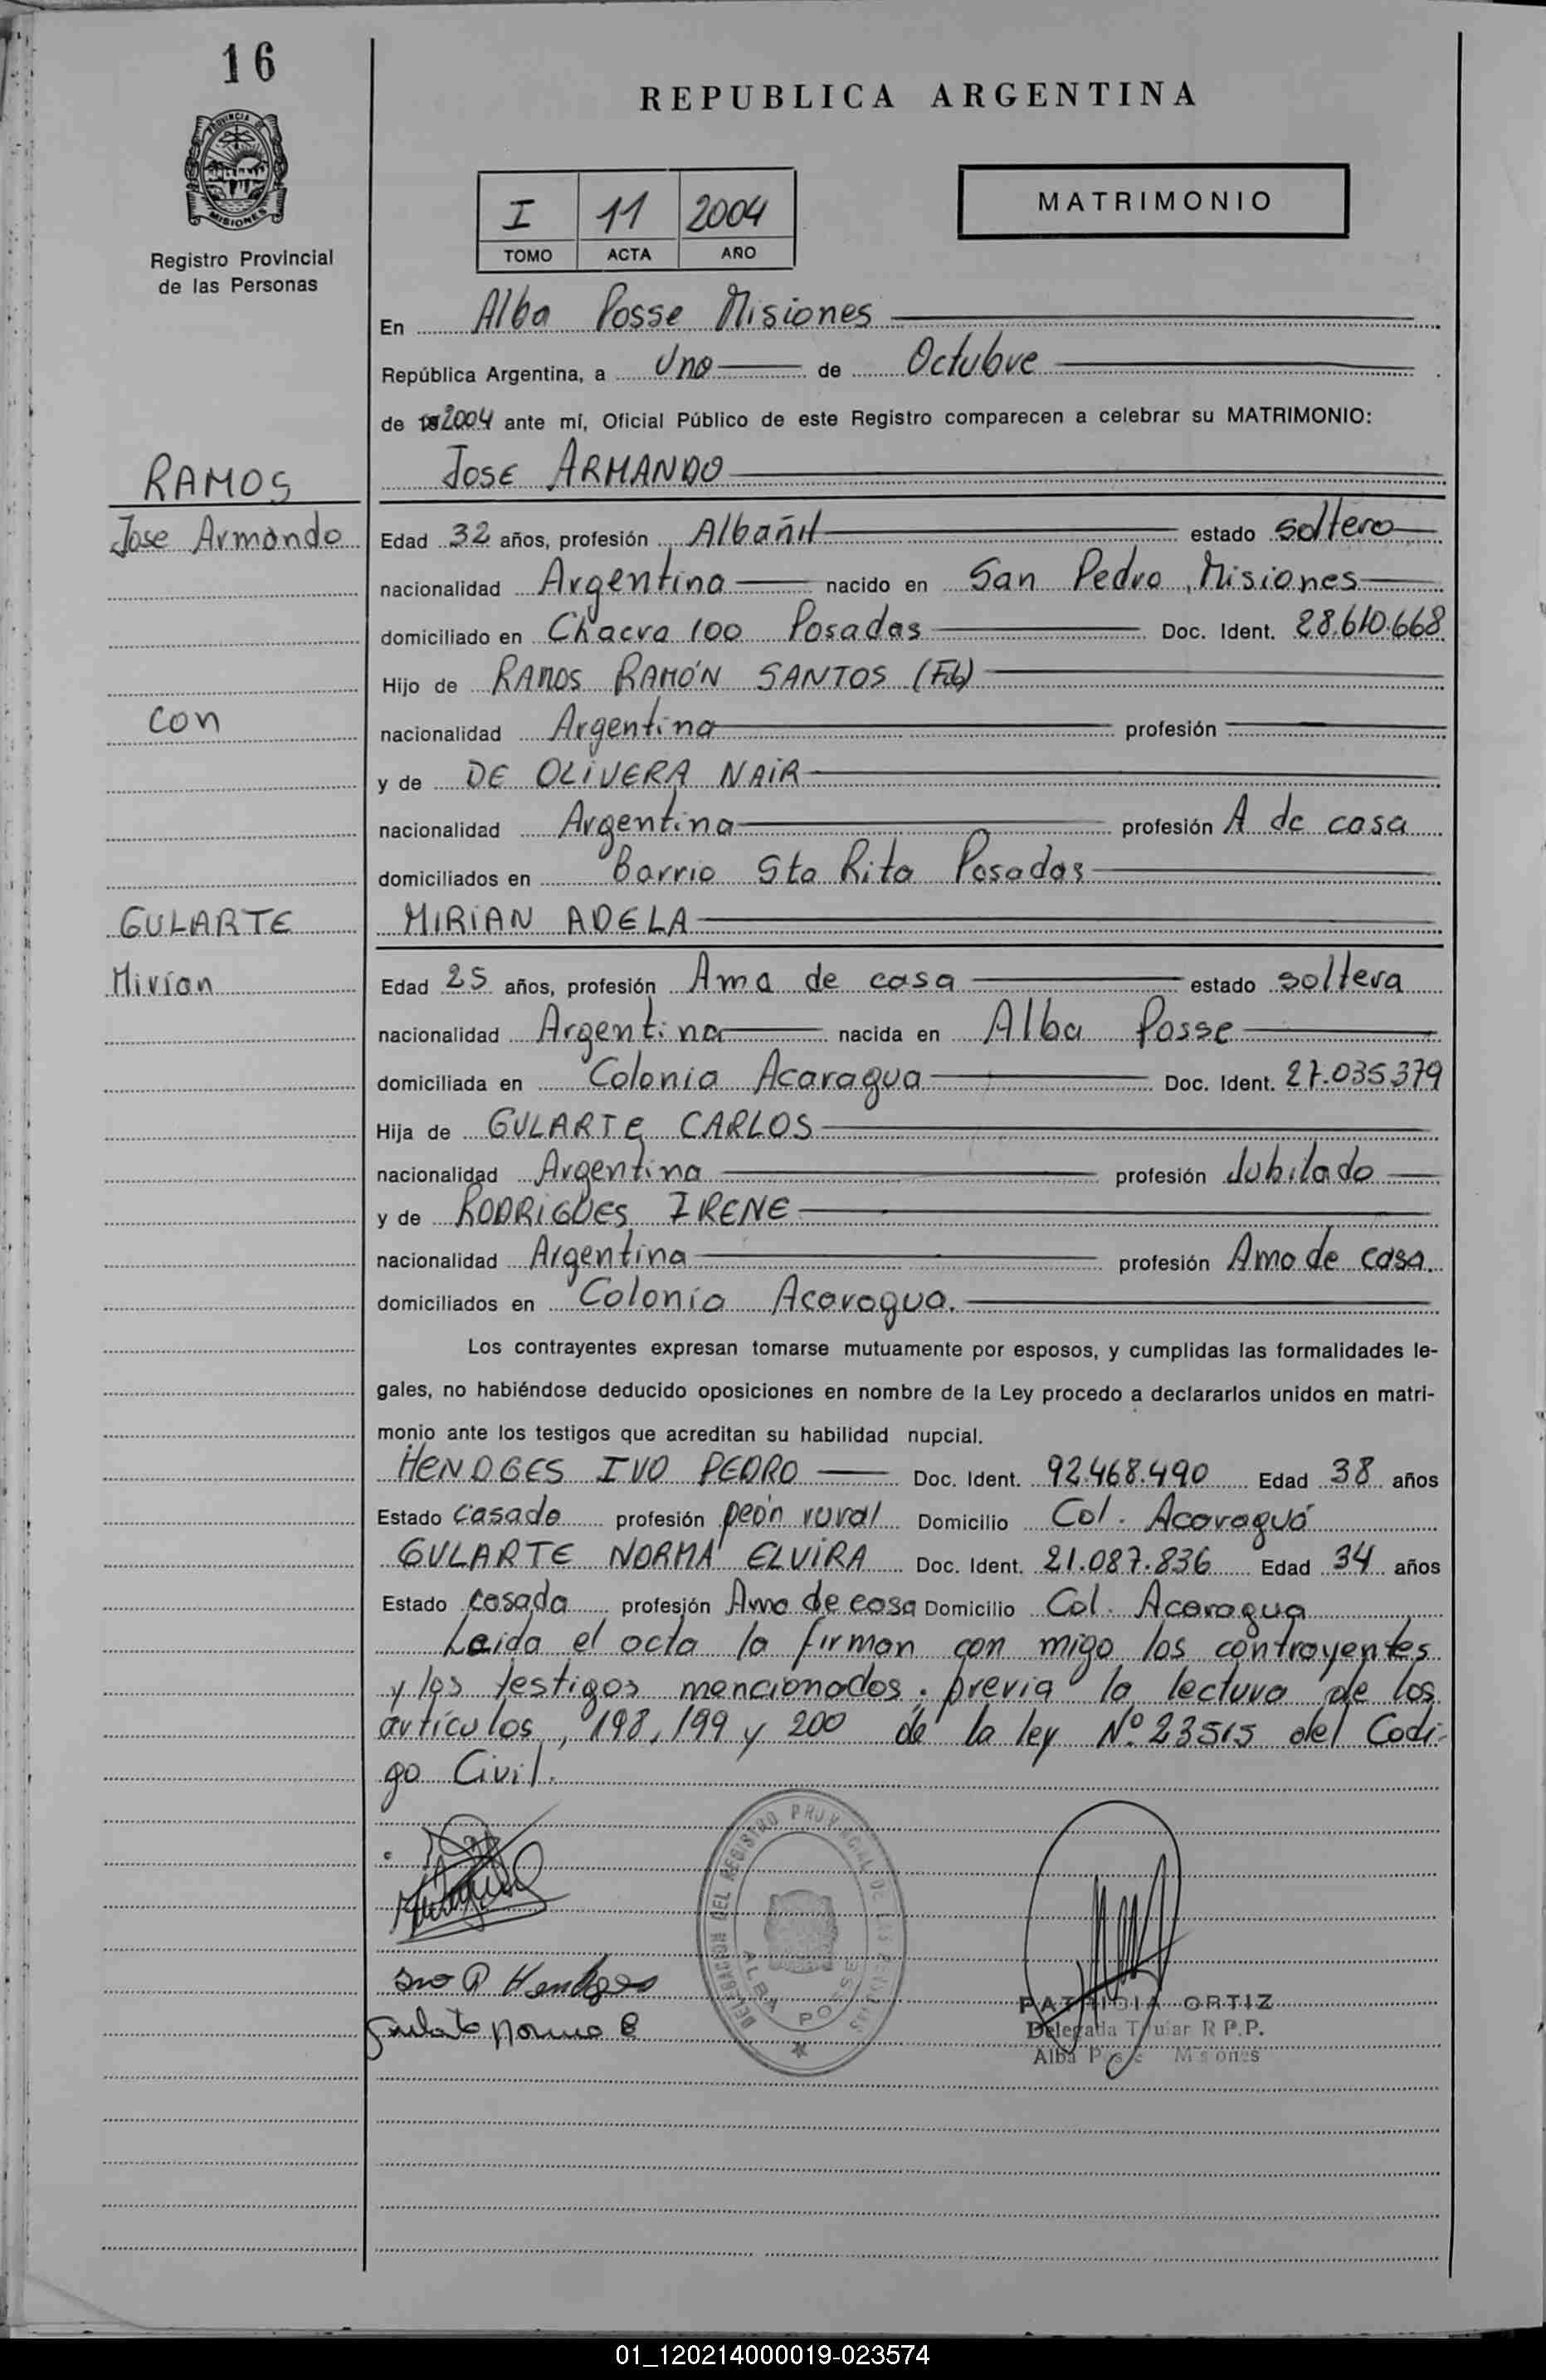 16
PROVINCIA DE
MISIONES
Registro Provincial
de las Personas
REPUBLICA ARGENTINA
I 11 2004
TOMO ACTA AÑO
MATRIMONIO
En Alba Posse Misiones
República Argentina, a Uno de Octubre
de 2004 ante mí, Oficial Público de este Registro comparecen a celebrar su MATRIMONIO:
RAMOS JOSE ARMANDO
Jose Armando Edad 32 años, profesión Albañil estado soltero
nacionalidad Argentina nacido en San Pedro, Misiones
domiciliado en Chacra 100 Posadas Doc. Ident. 28.610.668
Hijo de RAMOS RAMÓN SANTOS
con nacionalidad Argentina profesión
y de DE OLIVERA NAIR
nacionalidad Argentina profesión A de casa
domiciliados en Barrio Sta Rita Posadas
GULARTE MIRIAN ADELA
Mirian Edad 25 años, profesión Ama de casa estado soltera
nacionalidad Argentina nacida en Alba Posse
domiciliada en Colonia Acaragua Doc. Ident. 27.035.379
Hija de GULARTE CARLOS
nacionalidad Argentina profesión Jubilado
y de RODRIGUES IRENE
nacionalidad Argentina profesión Ama de casa.
domiciliados en Colonia Acaragua.
Los contrayentes expresan tomarse mutuamente por esposos, y cumplidas las formalidades le-
gales, no habiéndose deducido oposiciones en nombre de la Ley procedo a declararlos unidos en matri-
monio ante los testigos que acreditan su habilidad nupcial.
HENDGES IVO PEDRO Doc. Ident. 92.468.490 Edad 38 años
Estado casado profesión peón rural Domicilio Col. Acaraguá
GULARTE NORMA ELVIRA Doc. Ident. 21.087.836 Edad 34 años
Estado casada profesión Ama de casa Domicilio Col. Acaragua
Leida el acta la firman con migo los contrayentes
y los testigos mencionados. previa la lectura de los
artículos, 198, 199 y 200 de la ley Nº 23515 del Codi-
go Civil.
DELEGACION DEL REGISTRO PROVINCIAL DE LAS PERSONAS
ALBA POSSE
Ivo P Hendges
Gularte Norma E
PATRICIA ORTIZ
Delegada Titular R P.P.
Alba Posse Misiones
01_120214000019-023574